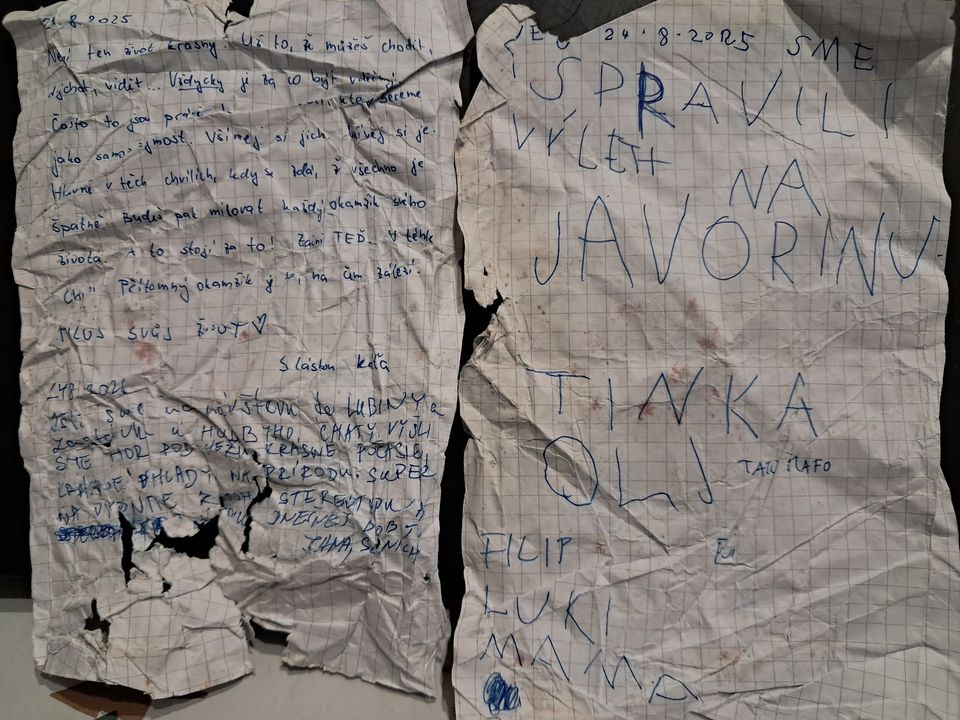 21.8.2025
Není ten život krásný. Už to, že můžeš chodit,
dýchat, vidět... Vždycky je za co být vděčný
Často to jsou právě které bereme
jako samozřejmost. Všímej si jich. Važ si je.
Hlavně v těch chvílích, kdy se zdá, že všechno je
špatně. Budeš pak milovat každý okamžik svého
života. A to stojí za to! Začni TEĎ. V téhle
Přítomný okamžik je to, na čem záleží.
MILUJ SVŮJ ŽIVOT ♡
S láskou Káťa
24.8.2025
sme na návštěvu do LUBINY a
CHATY VYŠLI
SME HOR POD VEŽU. KRASNE POČASIE,
KRASNE VHLADY NA PRÍRODU. SUPER
NA STEREOTYPU
DNEŠNEJ DOBY.
24.8.2025 SME
SPRAVILI
VÝLET
NA
JAVORINU.
TINKA
OLI TATO MAŤO
FILIP
LUKI
MAMA